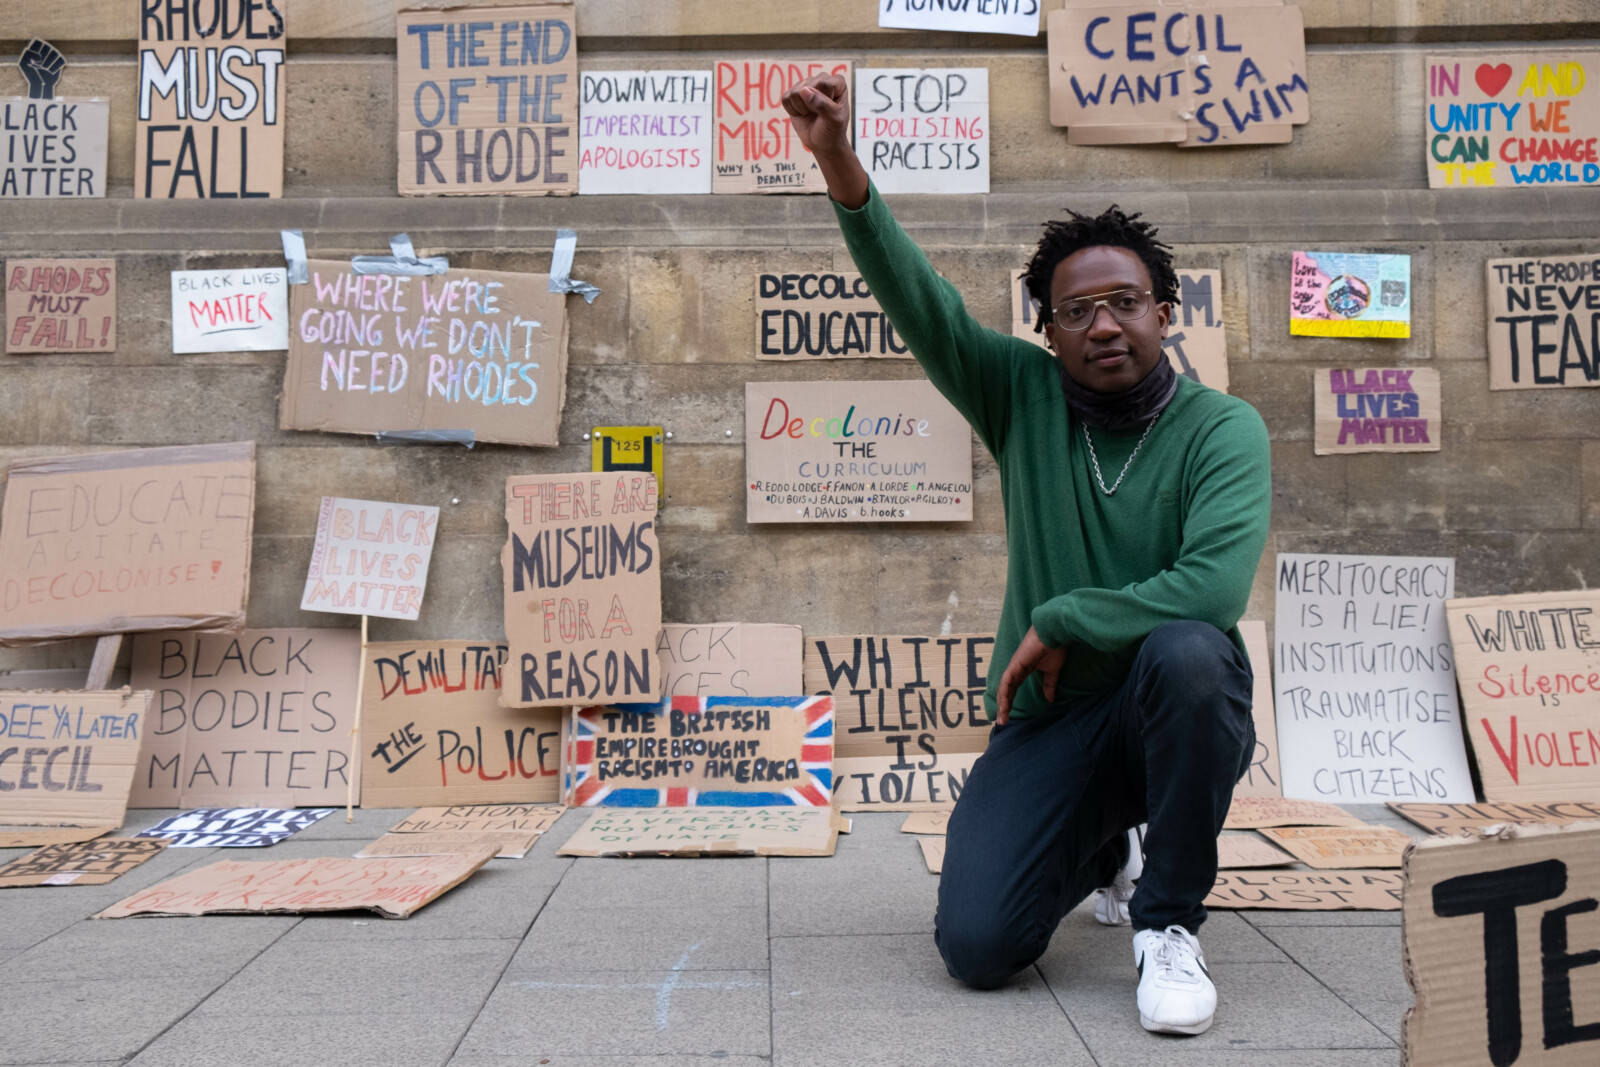 RHODES
MUST
FALL
BLACK
LIVES
MATTER
THE END
OF THE
RHODE
DOWN WITH
IMPERIALIST
APOLOGISTS
RHODES
MUST
WHY IS THIS A
DEBATE?!
STOP
IDOLISING
RACISTS
MONUMENTS
CECIL
WANTS A
SWIM
IN ♥ AND
UNITY WE
CAN CHANGE
THE WORLD
RHODES
MUST
FALL!
BLACK LIVES
MATTER
WHERE WE'RE
GOING WE DON'T
NEED RHODES
DECOLO
EDUCATIO
Love
is the
only
way
THE 'PROPE
NEVE
TEA
BLACK
LIVES
MATTER
125
Decolonise
THE
CURRICULUM
•R.EDDO LODGE•F.FANON•A.LORDE•M.ANGELOU
•DU BOIS•J.BALDWIN•B.TAYLOR•P.GILROY•
A.DAVIS•b.hooks•
EDUCATE
AGITATE
DECOLONISE!
BLACK
LIVES
MATTER
THERE ARE
MUSEUMS
FOR A
REASON
SEE YA LATER
CECIL
BLACK
BODIES
MATTER
DEMILITA
THE POLICE
ACK
THE BRITISH
EMPIRE BROUGHT
RACISM TO AMERICA
WHITE
SILENCE
IS
VIOLEN
MERITOCRACY
IS A LIE!
INSTITUTIONS
TRAUMATISE
BLACK
CITIZENS
WHITE
Silence
IS
VIOLEN
RHODES
MUST FALL
CELEBRATE
DIVERSITY
NOT RELICS
OF HATE
RHODES
MUST FALL
MATTER
ALWAYS
BLACK LIVES MATTER
SILENCE
OLONIA
UST F
TE